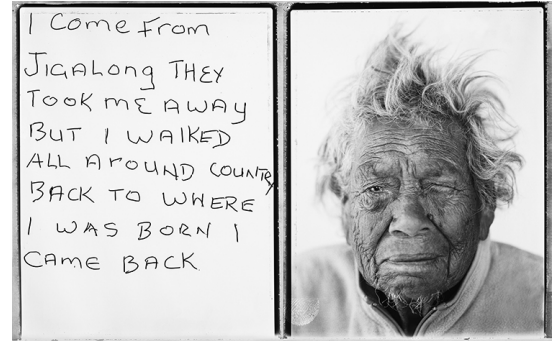 I Come From
JIGALong THEY
TOOK ME AWAY
BUT I WALKED
ALL AROUND COUNTRY
BACK TO WHERE
I WAS BORN I
CAME BACK